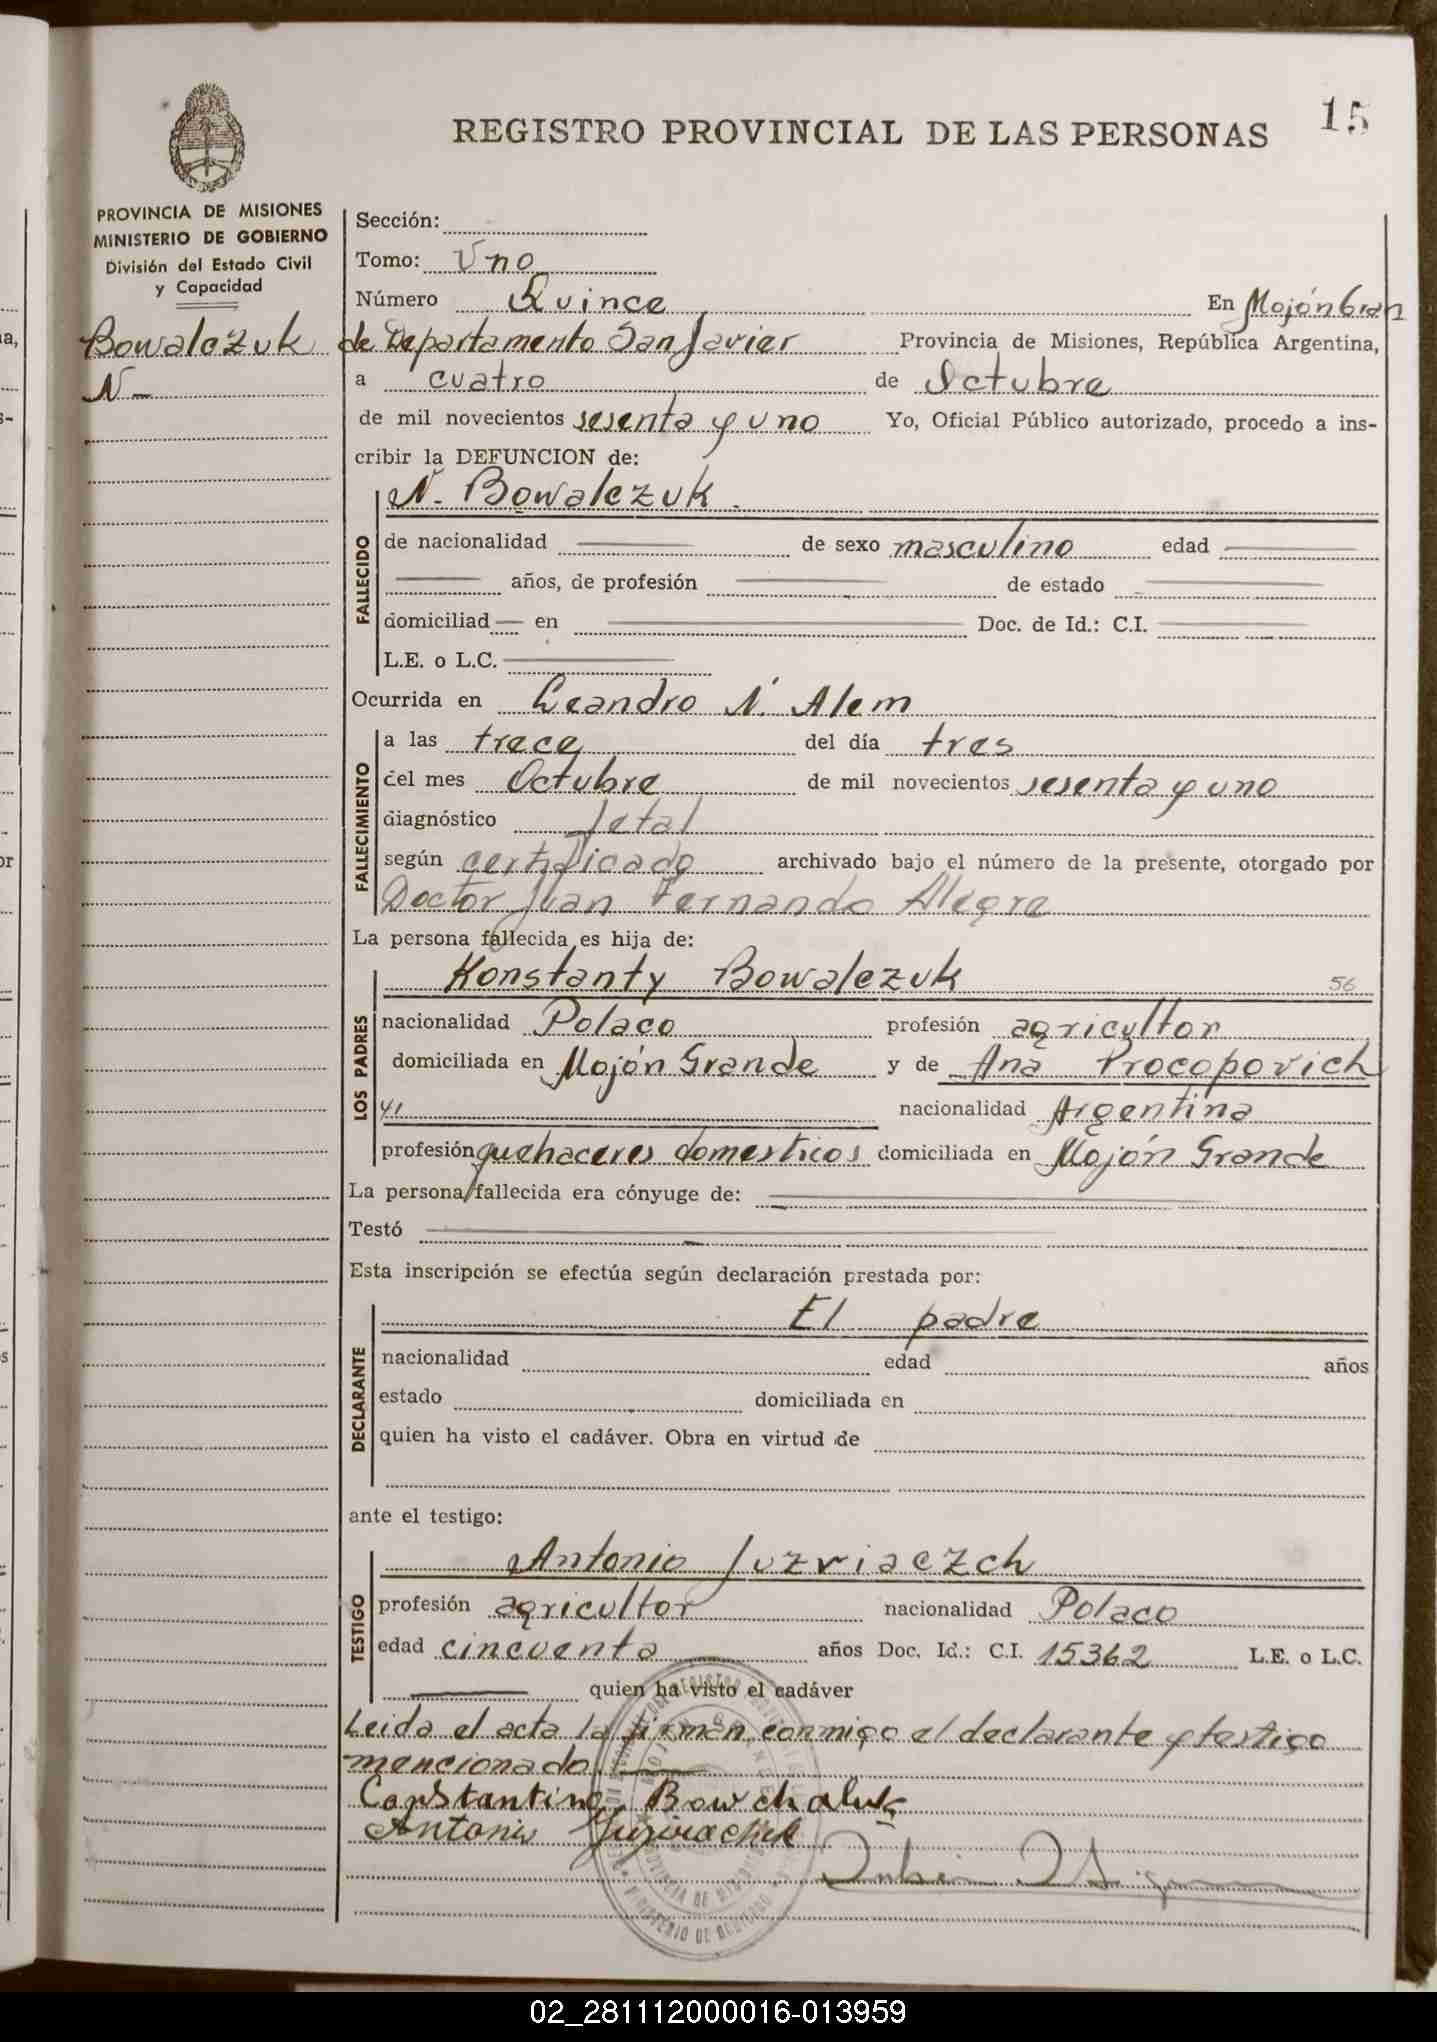 REGISTRO PROVINCIAL DE LAS PERSONAS
15
PROVINCIA DE MISIONES
MINISTERIO DE GOBIERNO
División del Estado Civil
y Capacidad
Bowalczuk
N-
Sección:
Tomo: Uno
Número Quince En Mojón Gran
de Departamento San Javier Provincia de Misiones, República Argentina,
a cuatro de Octubre
de mil novecientos sesenta y uno Yo, Oficial Público autorizado, procedo a ins-
cribir la DEFUNCION de:
N. Bowalczuk.
FALLECIDO
de nacionalidad de sexo masculino edad
años, de profesión de estado
domiciliad en Doc. de Id.: C.I.
L.E. o L.C.
Ocurrida en Leandro N. Alem
FALLECIMIENTO
a las trece del día tres
del mes Octubre de mil novecientos sesenta y uno
diagnóstico fetal
según certificado archivado bajo el número de la presente, otorgado por
Doctor Juan Fernando Alegre
La persona fallecida es hija de:
Konstanty Bowalczuk 56
LOS PADRES
nacionalidad Polaco profesión agricultor
domiciliada en Mojón Grande y de Ana Procopovich
41 nacionalidad Argentina
profesión quehaceres domesticos domiciliada en Mojón Grande
La persona fallecida era cónyuge de:
Testó
Esta inscripción se efectúa según declaración prestada por:
El padre
DECLARANTE
nacionalidad edad años
estado domiciliada en
quien ha visto el cadáver. Obra en virtud de
ante el testigo:
Antonio Juzviaczch
TESTIGO
profesión agricultor nacionalidad Polaco
edad cincuenta años Doc. Id.: C.I. 15362 L.E. o L.C.
quien ha visto el cadáver
Leida el acta la firman conmigo el declarante y testigo
mencionado.
Constantino Bowchaluk
Antonio
02_281112000016-013959